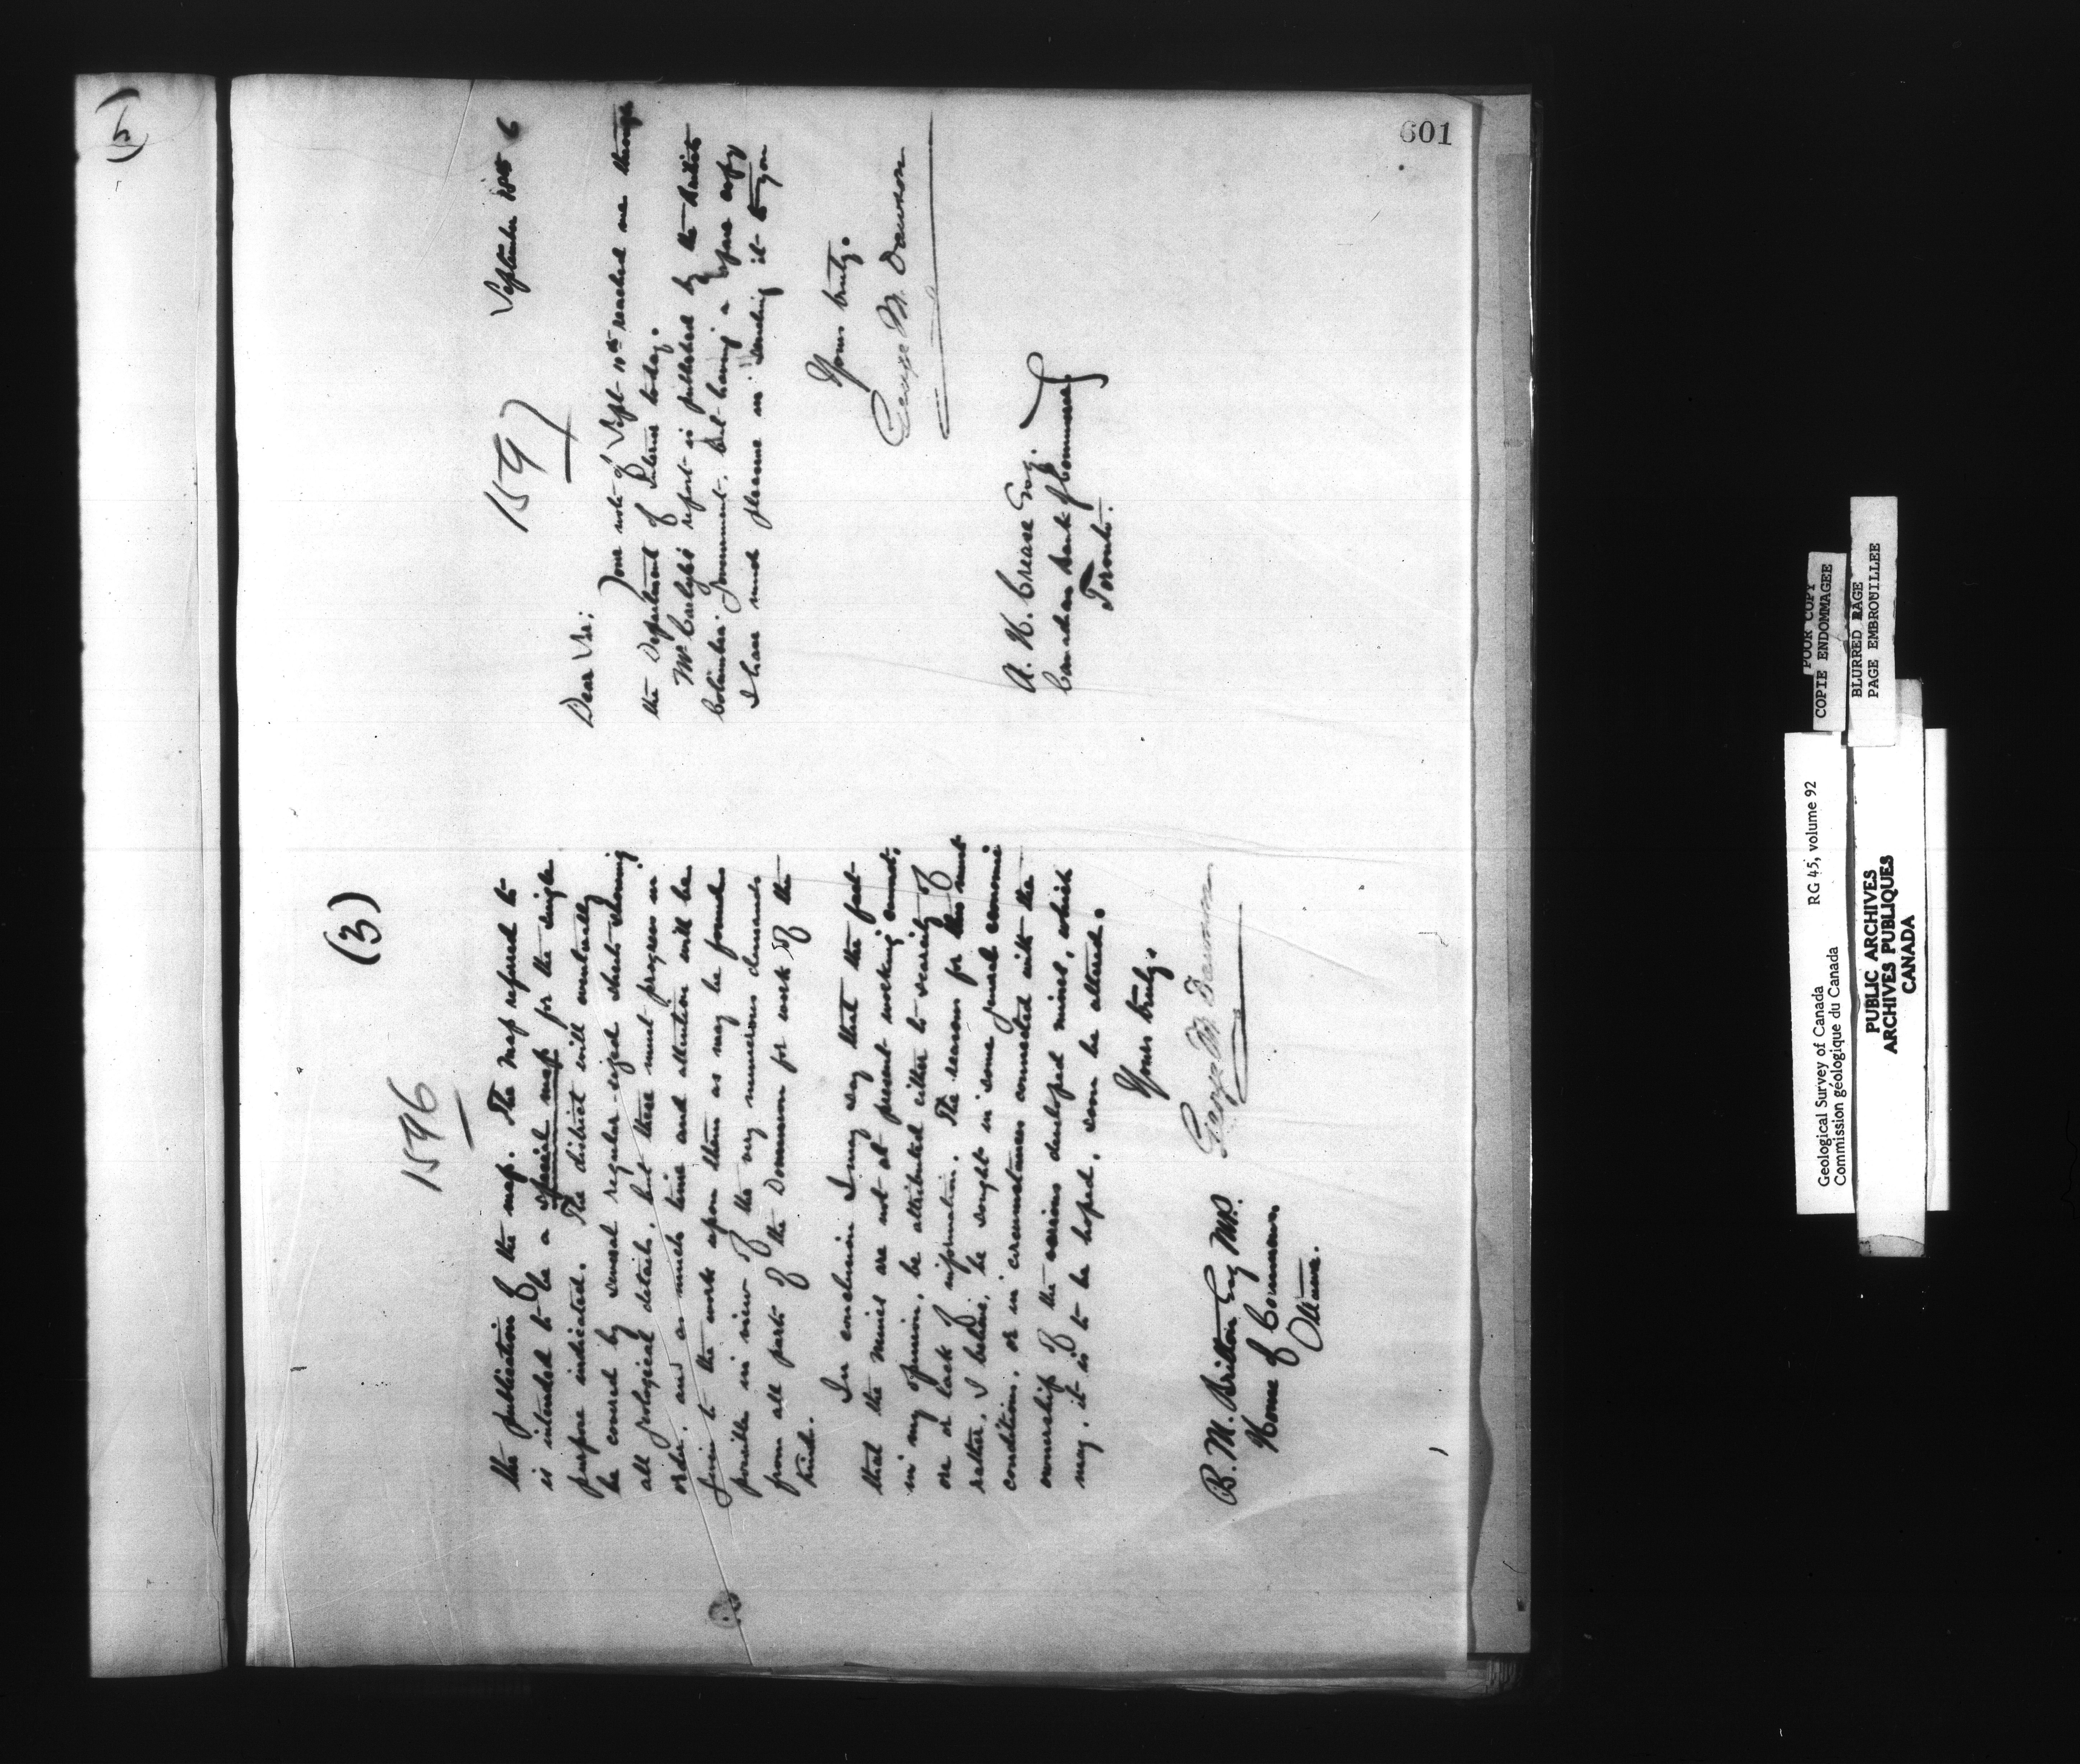 (3)
1596
the publication of the map. The map referred to
is intended to be a special map for the single
purpose indicated. The district will eventually
be covered by several regular-sized sheets showing
all geological details, but these must progress in
order, and as much time and attention will be
given to the work upon them as may be found
possible in view of the very numerous demands
from all parts of the Dominion for work of the
kind.
In conclusion I may say that the fact
that the mines are not at present working cannot,
in my opinion, be attributed either to scarcity of
ore or lack of information. The reasons for this must
rather, I believe, be sought in some general economic
conditions, or in circumstances connected with the
ownership of the various developed mines, which
may, it is to be hoped, soon be altered.
Yours truly,
George M. Dawson
B. M. Britton Esq MP.
House of Commons,
Ottawa.
1597
September 18th
Dear Sir;
Your note of Sept 10th reached me through
the Department of Interior today.
Mr Carlyle's report is published by the British
Columbia Government, but having a spare copy
I have much pleasure in sending it to you
Yours truly.
George M. Dawson
A. H. Crease Esq.
Canadian Bank of Commerce
Toronto.
601
(5)
POOR COPY
COPIE ENDOMMAGEE
BLURRED PAGE
PAGE EMBROUILLEE
Geological Survey of Canada RG 45, volume 92
Commission géologique du Canada
PUBLIC ARCHIVES
ARCHIVES PUBLIQUES
CANADA